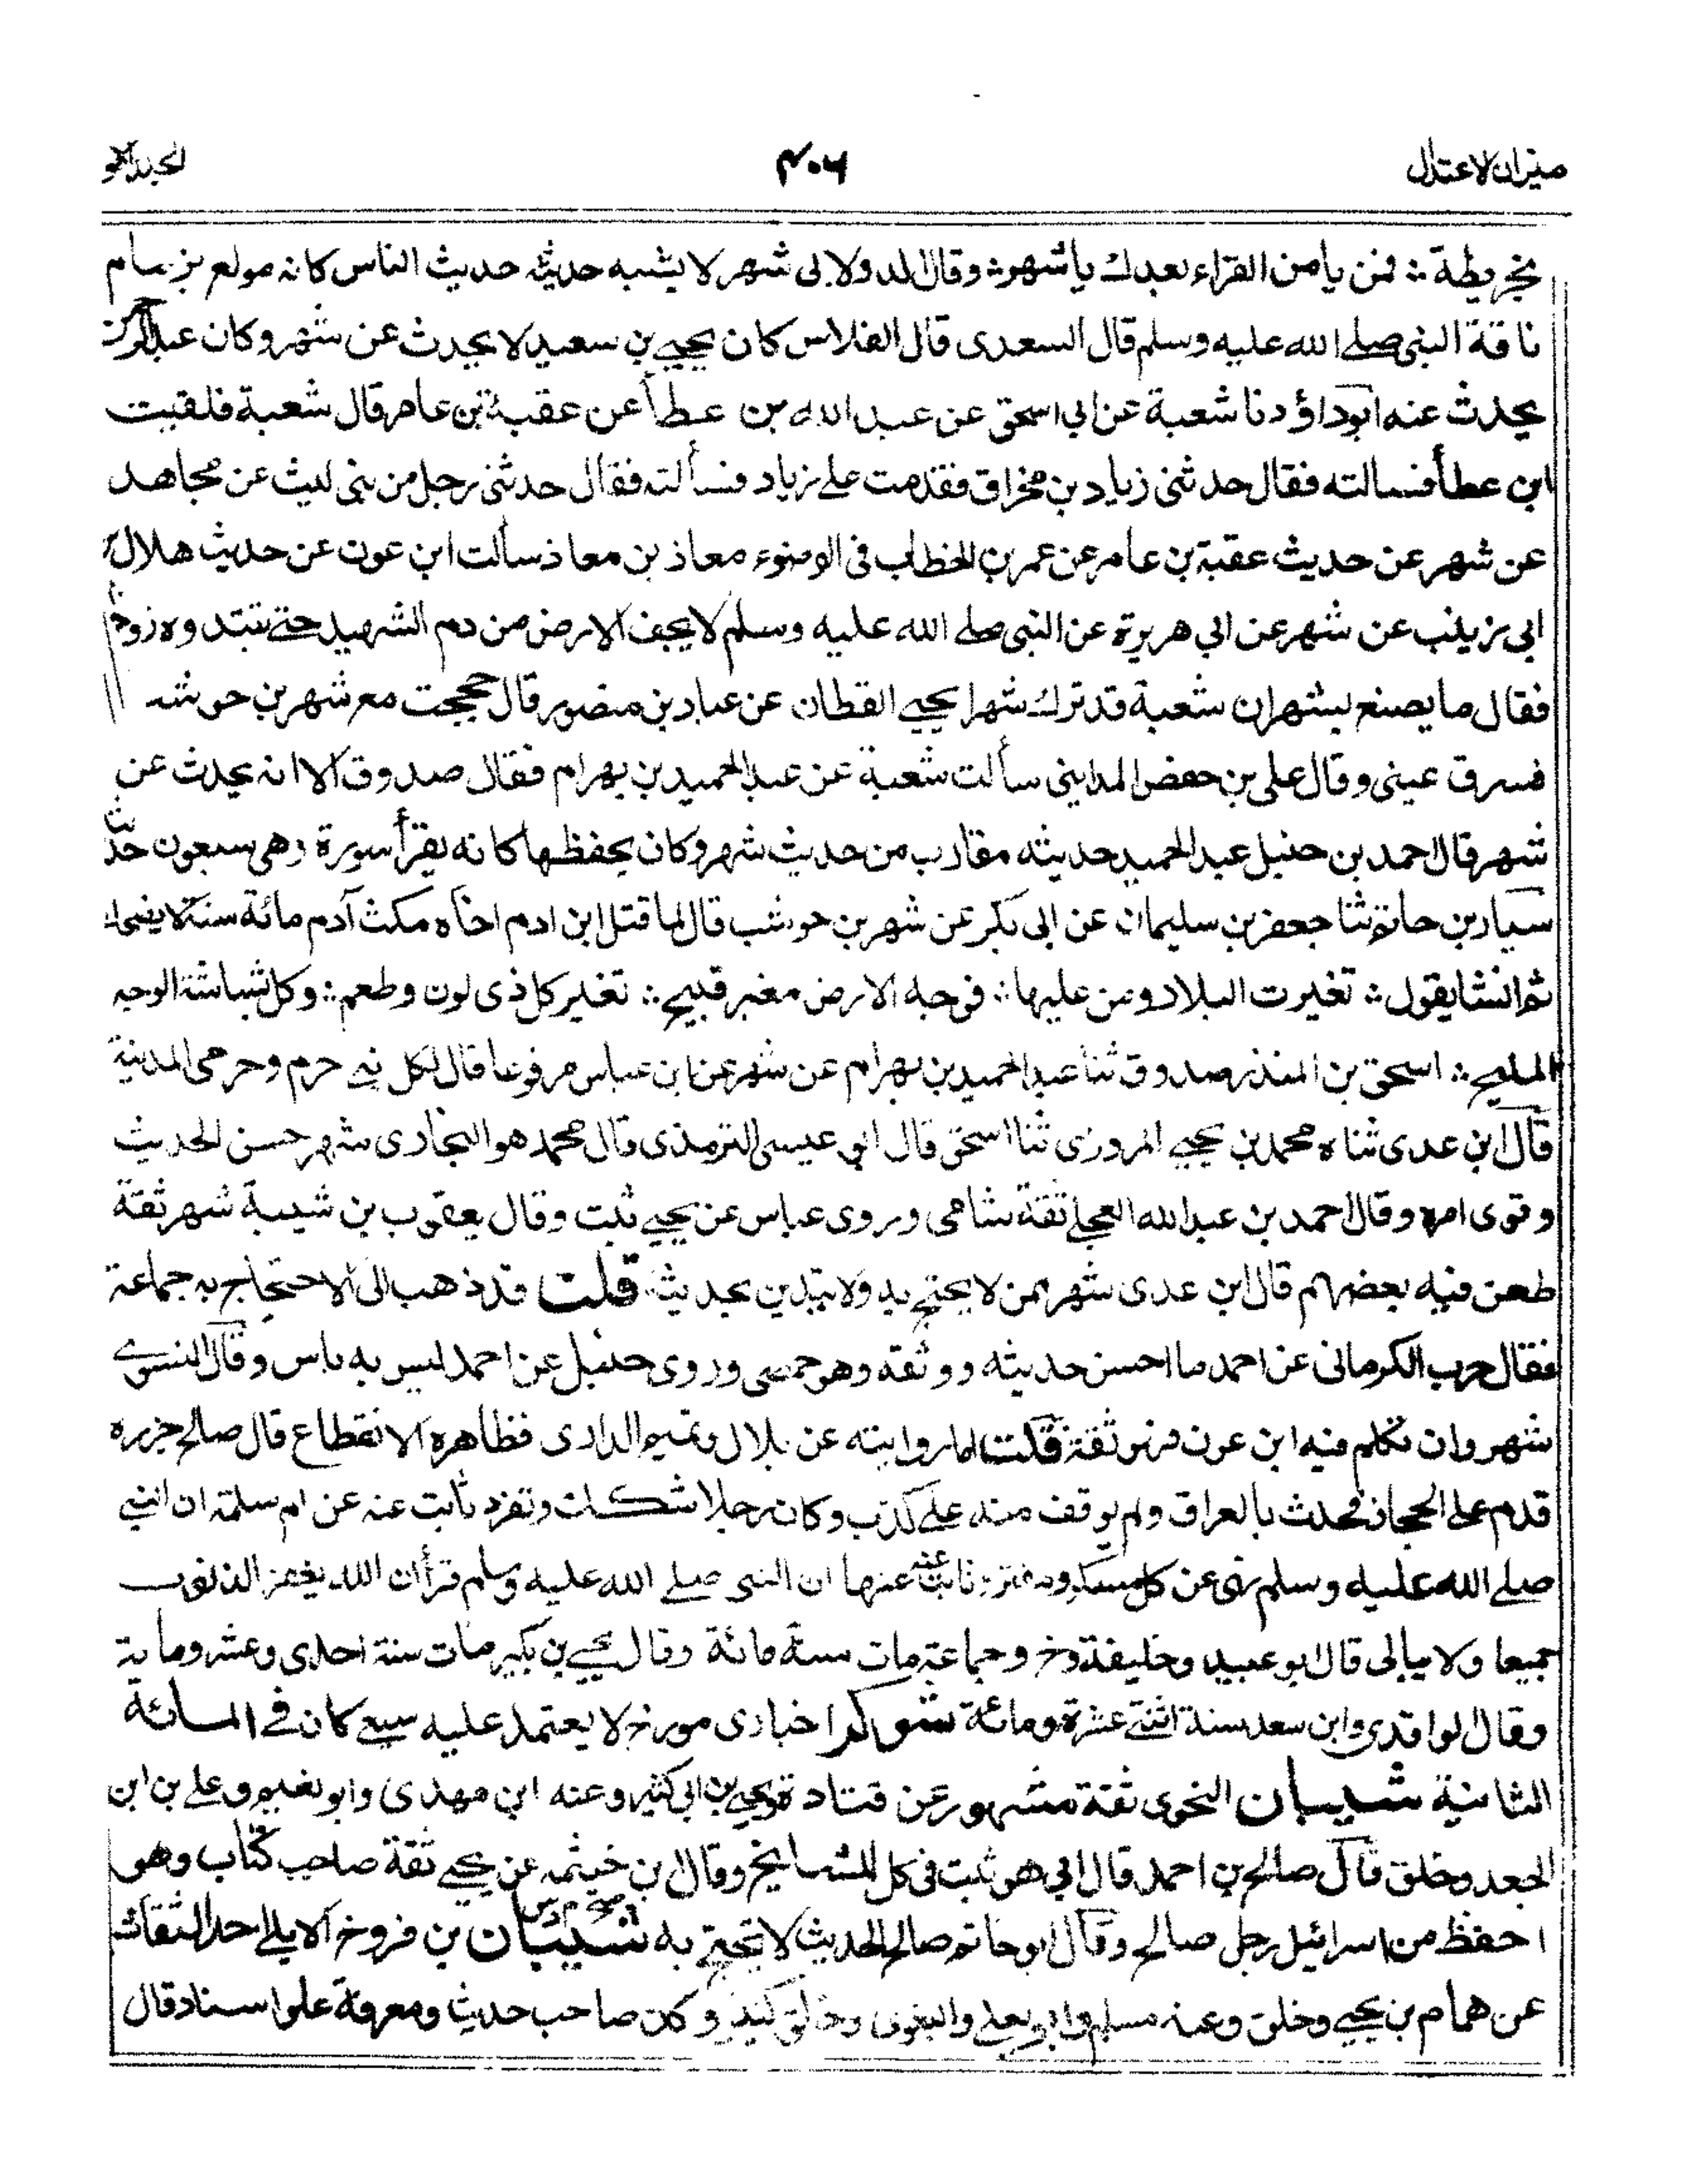 ميزان الاعتدال ۴۰۶ الجلد الاو
بخريطة ؞ فمن يامن القراء بعدك ياشهر ؞ وقال الدولابى شهر لا يشبه حديثه حديث الناس كانه مولع بزمام
ناقة النبى صلے الله عليه وسلم قال السعدى قال الفلاس كان يحيے بن سعيد لا يحدث عن شهر وكان عبدالرحمن
يحدث عنه ابوداؤد نا شعبة عن ابي اسحق عن عبد الله بن عطأ عن عقبة بن عامر قال شعبة فلقيت
ابن عطأ فسالته فقال حدثنى زياد بن مخراق فقدمت علے زياد فسألته فقال حدثنى رجل من بنى ليث عن مجاهد
عن شهر عن حديث عقبة بن عامر عن عمر بن الخطاب فى الوضوء معاذ بن معاذ سألت ابن عون عن حديث هلال بن
ابى زينب عن شهر عن ابي هريرة عن النبى صلے الله عليه وسلم لا يجف الارض من دم الشهيد حتے تبتدوه زوجتا
فقال ما يصنع بشهر ان شعبة قد ترك شهرا يحيے القطان عن عباد بن منصور قال حججت مع شهر بن حوشب
فسرق عيبتى وقال على بن حفص المداينى سألت شعبة عن عبد الحميد بن بهرام فقال صدوق الا انه يحدث عن
شهر قال احمد بن حنبل عبد الحميد حديثه مقارب من حديث شهر وكان يحفظها كانه يقرأ سورة وهى سبعون حديثا
سيار بن حاتم ثنا جعفر بن سليمان عن ابى بكر عن شهر بن حوشب قال لما قتل ابن ادم اخاه مكث آدم مائة سنة لا يضحك
ثم انشا يقول ؞ تغيرت البلاد ومن عليها ؞ فوجه الارض مغبر قبيح ؞ تغير كل ذى لون وطعم ؞ وكل بشاشة الوجه
المليح ؞ اسحق بن المنذر صدوق ثنا عبد الحميد بن بهرام عن شهر عن ابن عباس مرفوعا قال لكل نبے حرم وحرمى المدينة
قال ابن عدى ثناه محمد بن يحيے المروزى ثنا اسحق قال ابو عيسى الترمذى قال محمد هو البخارى شهر حسن الحديث
وقوى امره وقال احمد بن عبد الله العجلے ثقة شامى وروى عباس عن يحيے ثبت وقال يعقوب بن شيبة شهر ثقة
طعن فيه بعضهم قال ابن عدى شهر ممن لا يحتج به ولا يتدين بحديثه قلت قد ذهب الى الاحتجاج به جماعة
فقال حرب الكرمانى عن احمد ما احسن حديثه ووثقه وهو حمصى وروى حنبل عن احمد ليس به باس وقال النسوے
شهر وان تكلم فيه ابن عون فهو ثقة قلت اما روايته عن بلال وتميم الدارى فظاهره الانقطاع قال صالح جزره
قدم على الحجاز فحدث بالعراق ولم يوقف منه علے كذب وكان رجلا وتفرد ثابت عنه عن ام سلمة ان النبے
صلے الله عليه وسلم نهى عن كل مسكر ومفتر ثابت عنه عنها ان النبى صلے الله عليه وسلم قرأ ان الله يغفر الذنوب
جميعا ولا يبالى قال ابو عبيد وخليفة وخ وجماعة مات سنة مائة وقال يحيے بن بكير مات سنة احدى وعشر وماية
وقال الواقدى وابن سعد سنة اثنتے عشرة ومائة شوكر اخبارى مورخ لا يعتمد عليه سيع كان فے المائة
الثامنية شيبان النحوى ثقة مشهور عن قتادة ويحيے بن ابى كثير وعنه ابن مهدى وابو نعيم وعلے بن ابن
الجعد وخلق قال صالح بن احمد قال ابي هو ثبت فى كل المشايخ وقال بن خيثمه عن يحيے ثقة صاحب كتاب وهو
احفظ من اسرائيل رجل صالح وقال ابو حاتم صالح الحديث لا يحتج به شيبان بن فروخ الايلے احد الثقات
عن همام بن يحيے وخلق وعنه مسلم وابو يعلے والبغوى وخلق كثير وكان صاحب حديث ومعرفة علو اسناد قال